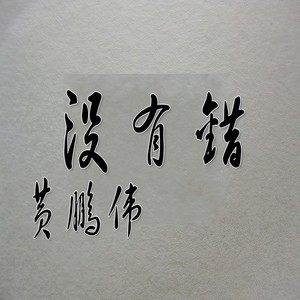 没有错
黄鹏伟